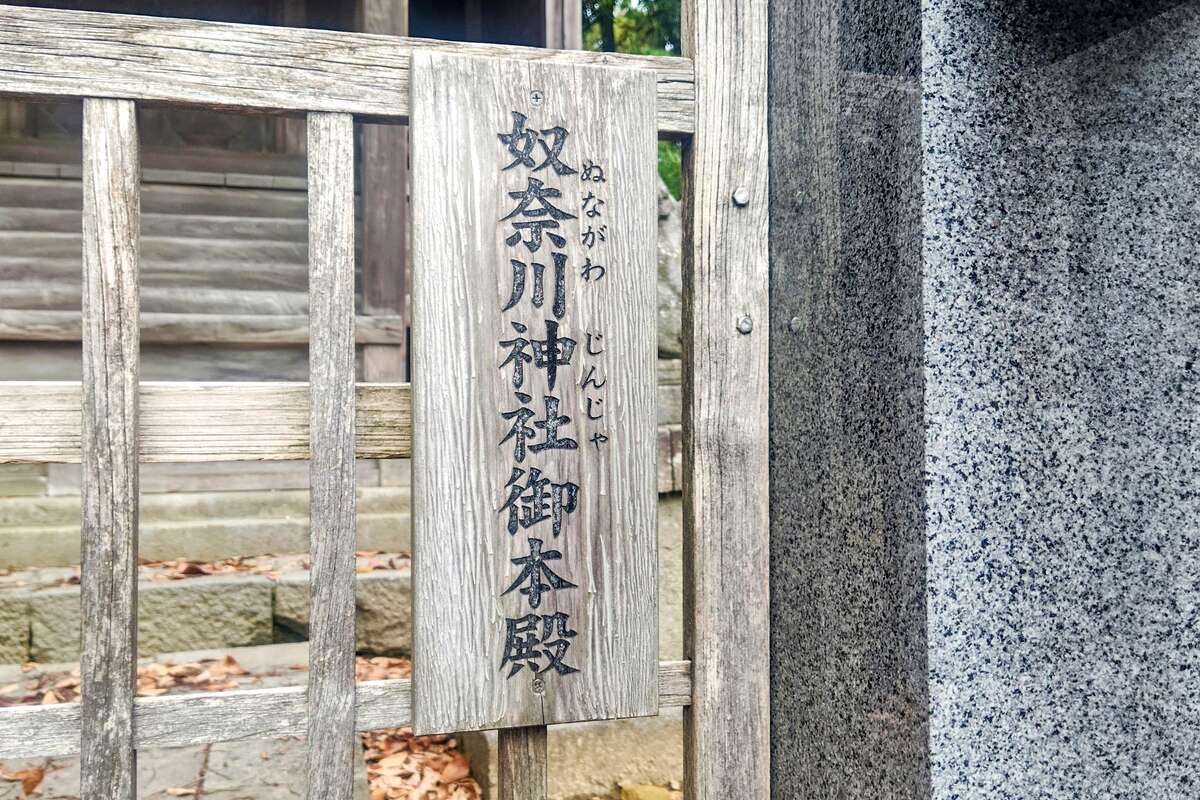 奴奈川神社御本殿
ぬながわ じんじゃ